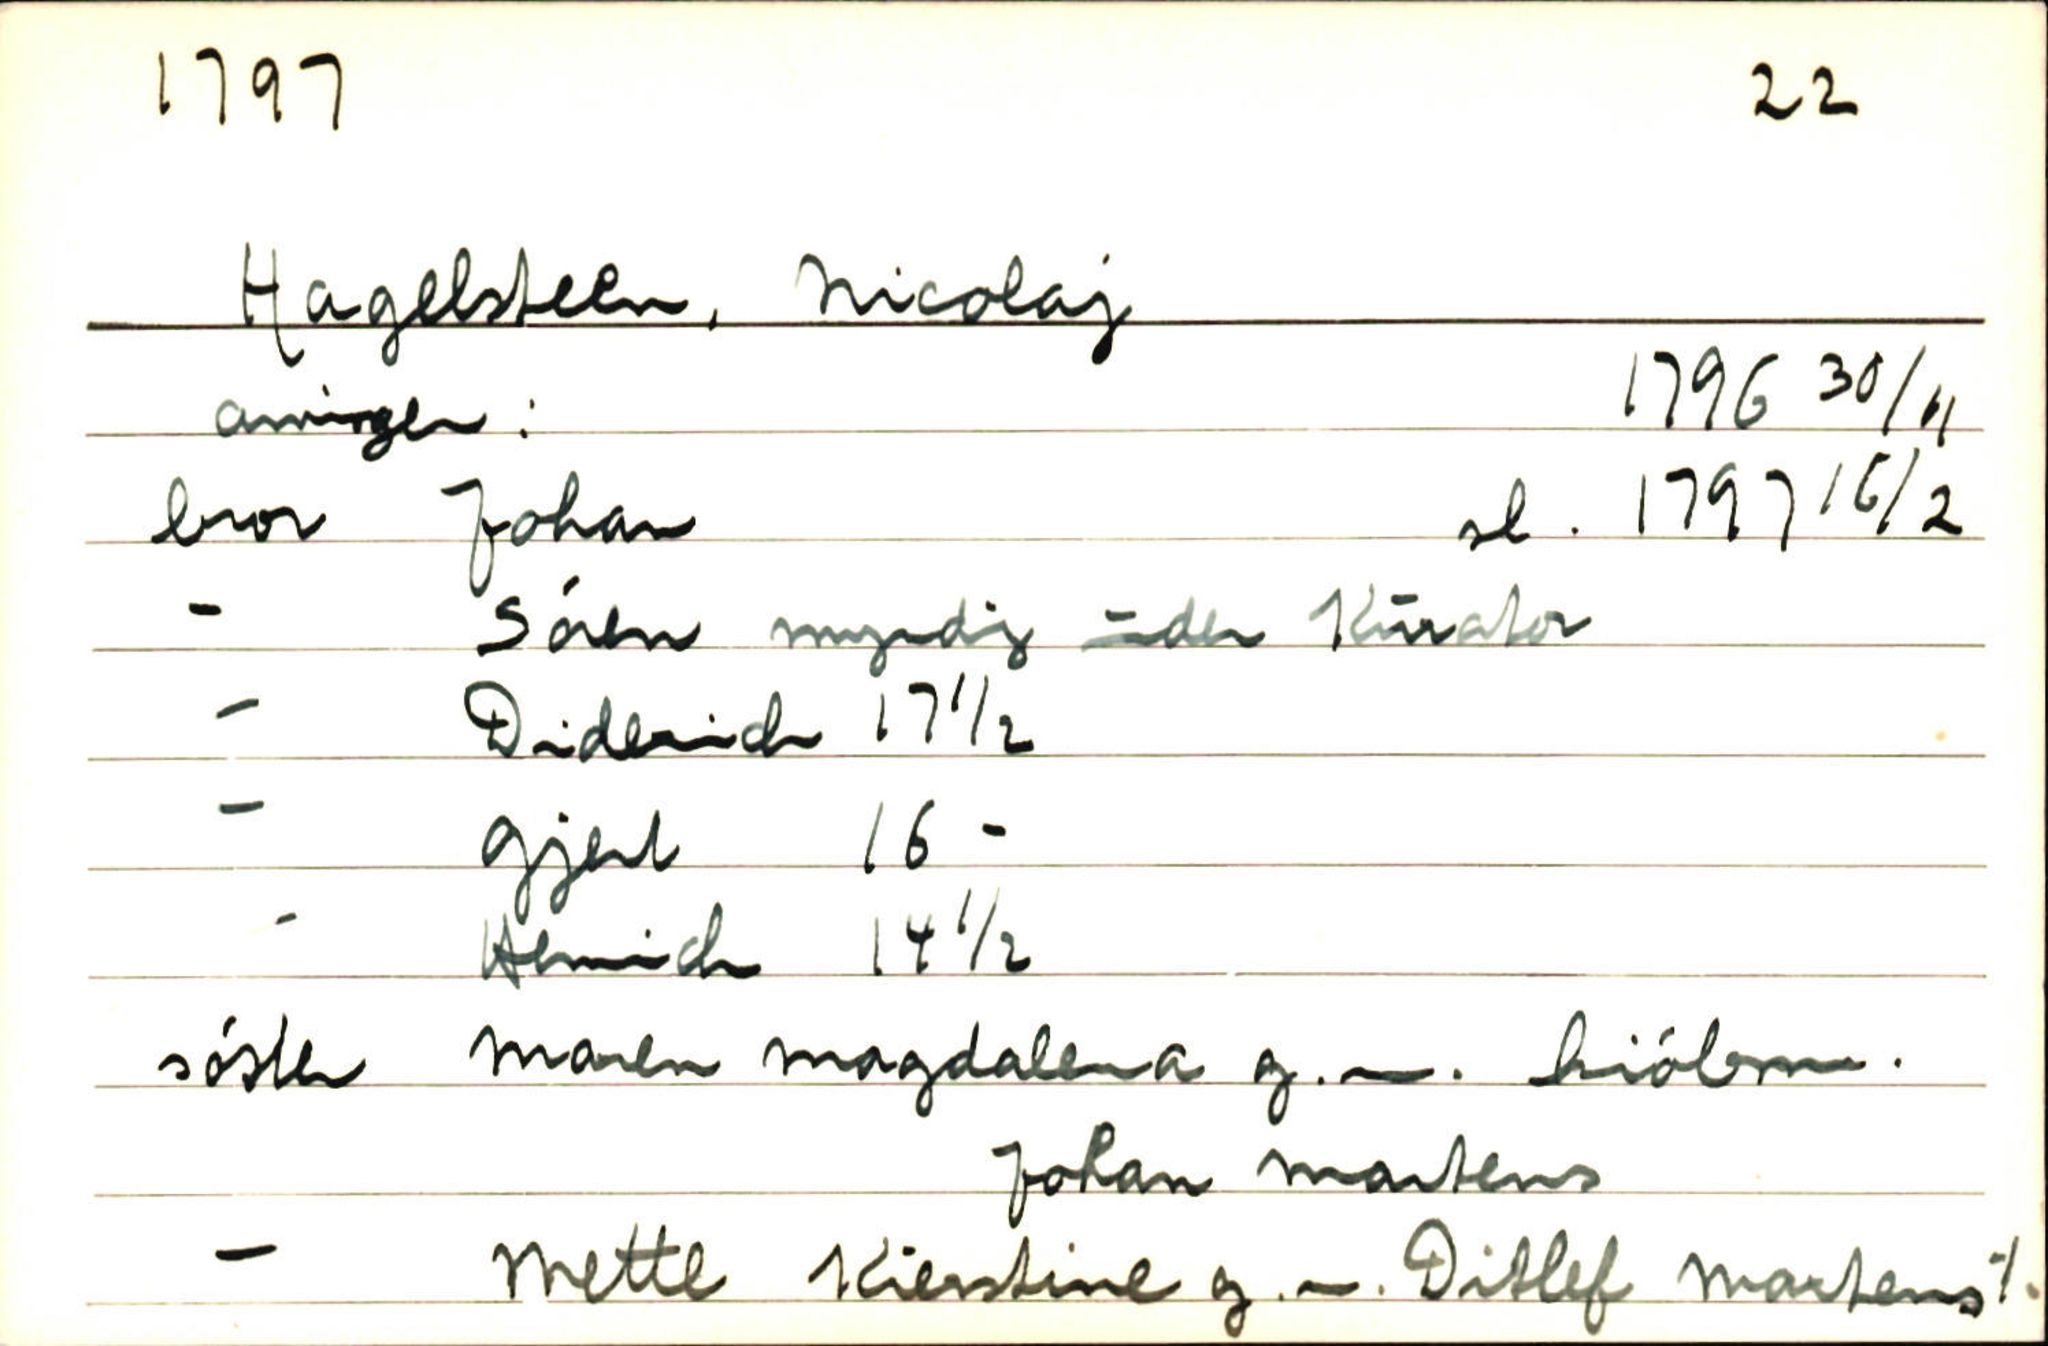 1797 22
Hagelsteen, Nicolaj
arvinger: 1796 30/11
bror Johan sl. 1797 16/2
- Sören myndig under Kurator
- Diderich 17 1/2
- Gjert 16 -
- Henrich 14 1/2
söster Maren Magdalena g.m. kiöbm.
Johan Martens
- Mette Kierstine g.m. Ditlef Martens ·/.